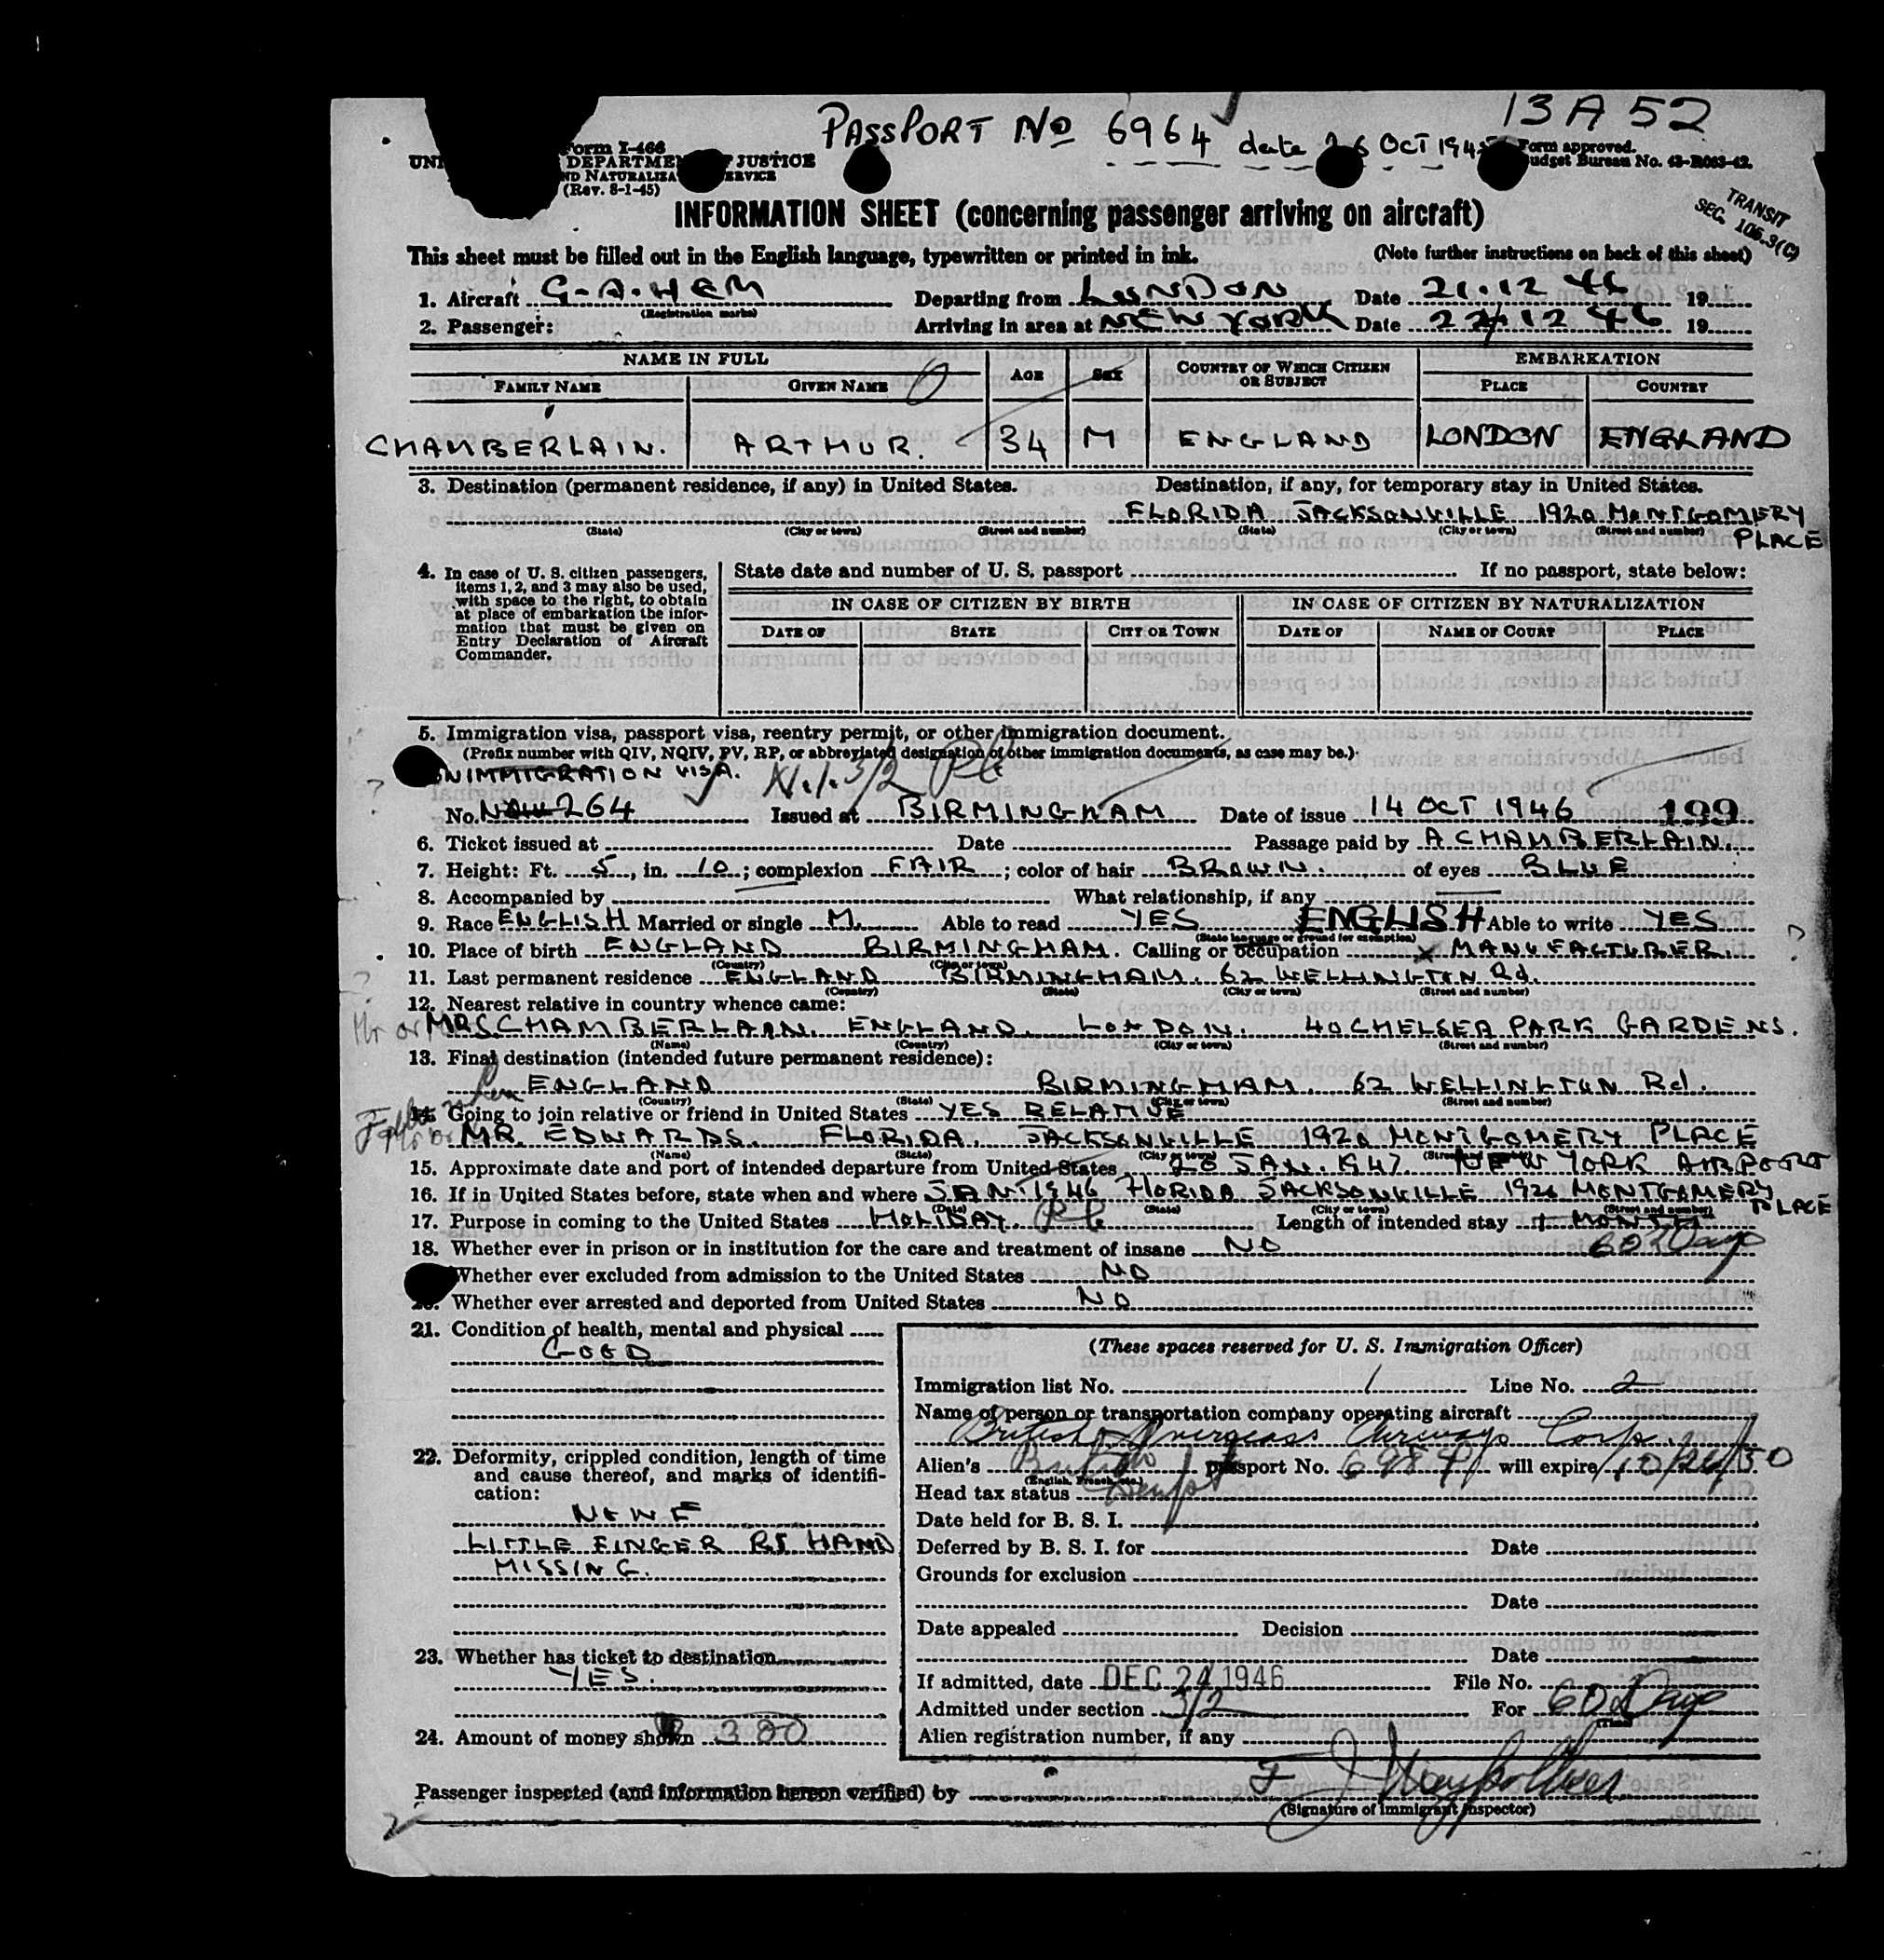 13 A 52
PASSPORT No 6964 date 26 OCT 1945
Form I-466
UNI DEPARTME JUSTICE
ND NATURALIZA ERVICE
(Rev. 8-1-45)
Form approved.
udget Bureau No. 43-R063-42.
TRANSIT
SEC. 105.3(C)
INFORMATION SHEET (concerning passenger arriving on aircraft)
This sheet must be filled out in the English language, typewritten or printed in ink. (Note further instructions on back of this sheet)
1. Aircraft G-A.HEM Departing from LONDON Date 21.12 46 19
(Registration marks)
2. Passenger: Arriving in area at NEW YORK Date 22/12 46 19
NAME IN FULL AGE SEX COUNTRY OF WHICH CITIZEN OR SUBJECT EMBARKATION
FAMILY NAME GIVEN NAME PLACE COUNTRY
CHAMBERLAIN. ARTHUR. 34 M ENGLAND LONDON ENGLAND
3. Destination (permanent residence, if any) in United States. Destination, if any, for temporary stay in United States.
FLORIDA JACKSONVILLE 1920 MONTGOMERY PLACE
(State) (City or town) (Street and number) (State) (City or town) (Street and number)
4. In case of U. S. citizen passengers, items 1, 2, and 3 may also be used, with space to the right, to obtain at place of embarkation the information that must be given on Entry Declaration of Aircraft Commander.
State date and number of U. S. passport If no passport, state below:
IN CASE OF CITIZEN BY BIRTH IN CASE OF CITIZEN BY NATURALIZATION
DATE OF STATE CITY OR TOWN DATE OF NAME OF COURT PLACE
5. Immigration visa, passport visa, reentry permit, or other immigration document.
(Prefix number with QIV, NQIV, PV, RP, or abbreviated designation of other immigration documents, as case may be.)
NIMMIGRATION VISA. N.I. 3/2
No. 264 Issued at BIRMINGHAM Date of issue 14 OCT 1946 199
6. Ticket issued at Date Passage paid by A CHAMBERLAIN.
7. Height: Ft. 5, in. 10; complexion FAIR; color of hair BROWN. of eyes BLUE
8. Accompanied by What relationship, if any
9. Race ENGLISH Married or single M. Able to read YES ENGLISH Able to write YES
(State language or ground for exemption)
10. Place of birth ENGLAND BIRMINGHAM. Calling or occupation MANUFACTURER.
(Country) (City or town)
11. Last permanent residence ENGLAND BIRMINGHAM. 62 WELLINGTON Rd.
(Country) (State) (City or town) (Street and number)
12. Nearest relative in country whence came:
Mr or MRS CHAMBERLAIN. ENGLAND. LONDON. 40 CHELSEA PARK GARDENS.
(Name) (Country) (City or town) (Street and number)
13. Final destination (intended future permanent residence):
ENGLAND BIRMINGHAM. 62 WELLINGTON Rd.
(Country) (State) (City or town) (Street and number)
14. Going to join relative or friend in United States YES RELATIVE
MR. EDWARDS. FLORIDA. JACKSONVILLE 1920 MONTGOMERY PLACE
(Name) (State) (City or town) (Street and number)
15. Approximate date and port of intended departure from United States 20 JAN. 1947. NEW YORK AIRPORT
16. If in United States before, state when and where JAN. 1946 FLORIDA JACKSONVILLE 1920 MONTGOMERY PLACE
(Date) (State) (City or town) (Street and number)
17. Purpose in coming to the United States HOLIDAY. Length of intended stay 1 MONTH
60 Days
18. Whether ever in prison or in institution for the care and treatment of insane NO
Whether ever excluded from admission to the United States NO
20. Whether ever arrested and deported from United States NO
21. Condition of health, mental and physical
GOOD
22. Deformity, crippled condition, length of time and cause thereof, and marks of identification:
NONE
LITTLE FINGER RT HAND
MISSING.
23. Whether has ticket to destination
YES.
24. Amount of money shown 300
(These spaces reserved for U. S. Immigration Officer)
Immigration list No. 1 Line No. 2
Name of person or transportation company operating aircraft
British Overseas Airways Corp.
Alien's British passport No. 6984 will expire 10/26/50
(English, French, etc.)
Head tax status Exempt
Date held for B. S. I.
Deferred by B. S. I. for Date
Grounds for exclusion
Date
Date appealed Decision
Date
If admitted, date DEC 24 1946 File No.
Admitted under section 3/2 For 60 Days
(Time)
Alien registration number, if any
Passenger inspected (and information hereon verified) by
(Signature of Immigrant Inspector)
2